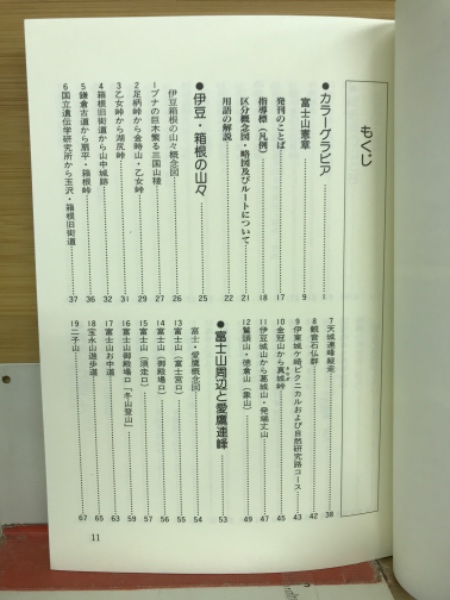 もくじ
●カラーグラビア……1
富士山憲章……9
発刊のことば……17
指導標（凡例）……18
区分概念図・略図及びルートについて……21
用語の解説……22
●伊豆・箱根の山々……25
伊豆箱根の山々概念図……26
1 ブナの巨木繁る三国山稜……27
2 足柄峠から金時山・乙女峠……29
3 乙女峠から湖尻峠……31
4 箱根旧街道から山中城跡……32
5 鎌倉古道から扇平・箱根峠……36
6 国立遺伝学研究所から玉沢・箱根旧街道……37
7 天城連峰縦走……38
8 観音石仏群……42
9 伊東城ケ崎ピクニカルおよび自然研究路コース……43
10 金冠山から真城峠……45
11 伊豆城山から葛城山・発端丈山……47
12 鷲頭山・徳倉山（象山）……49
●富士山周辺と愛鷹連峰……53
富士・愛鷹概念図……54
13 富士山（富士宮口）……55
14 富士山（御殿場口）……56
15 富士山（須走口）……57
16 富士山御殿場口「冬山登山」……59
17 富士山お中道……63
18 宝永山遊歩道……65
19 二子山……67
11